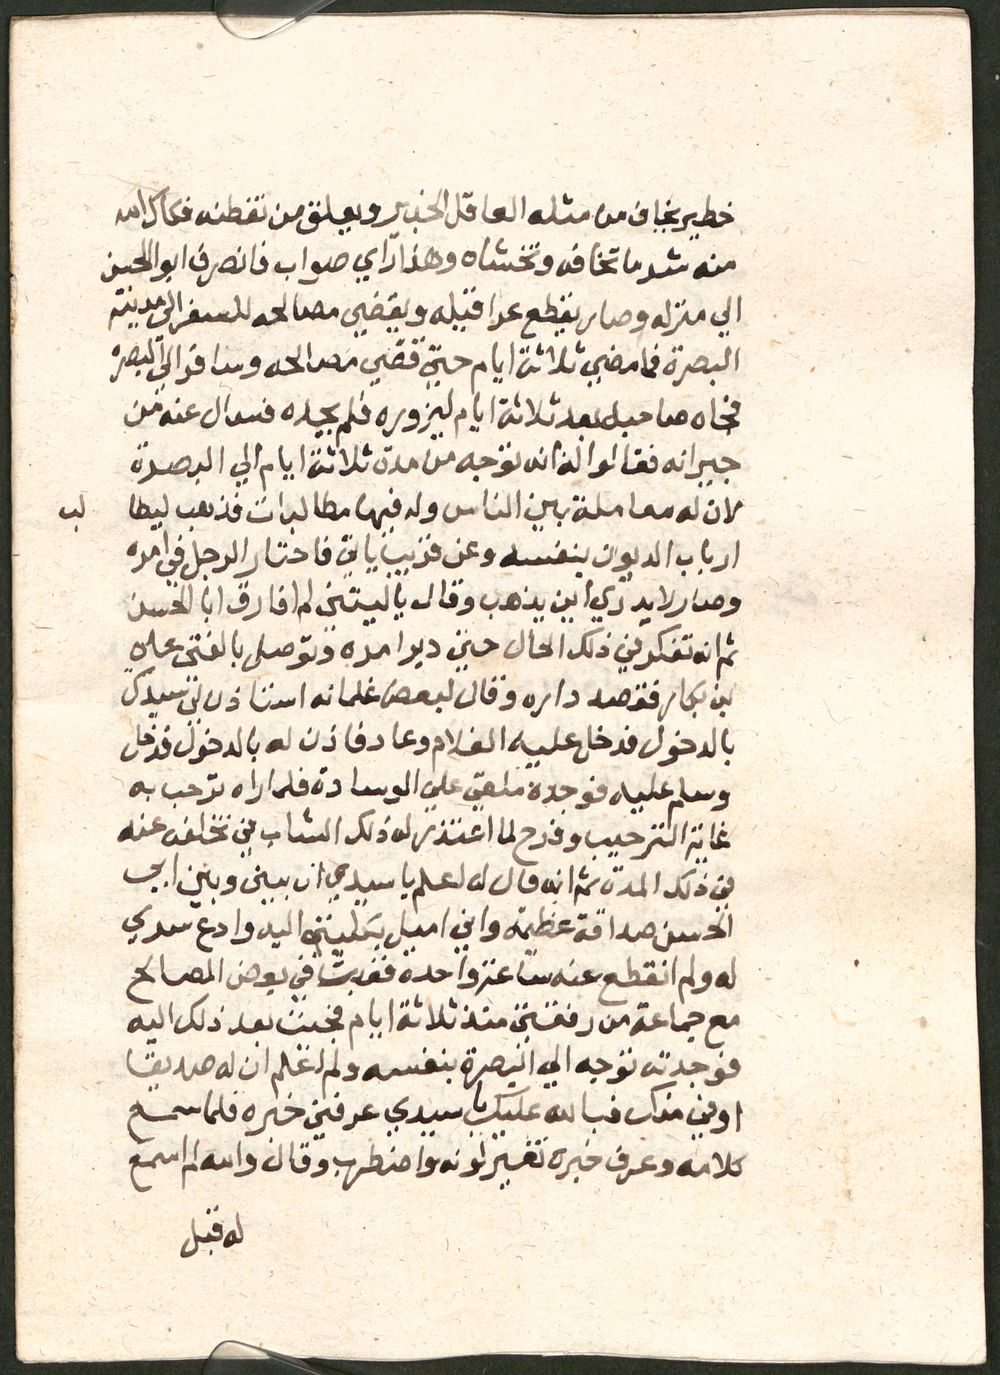 خطير يخاف من مثله العاقل الخبير ويعلق من تفطنه فكفاك الله
منه شر ما تخافه وتخشاه وهذا رأي صواب فانصرف ابو الحسن
الي منزله وصار يقطع عراقيله ويقضي مصالحه للسفر الي مدينة
البصرة فما مضي ثلاثة ايام حتي قضي مصالحه وسافر الي البصره
فجاه صاحبه بعد ثلاثة ايام ليزوره فلم يجده فسال عنه من
جيرانه فقالوا له انه توجه من مدة ثلاثة ايام الي البصرة
لان له معاملة بين الناس وله فيها مطالبات فذهب ليطا لب
ارباب الديون بنفسه وعن قريب ياتي فاحتار الرجل في امره
وصار لا يدري اين يذهب وقال يا ليتني لم افارق ابا الحسن
ثم انه تفكر في ذلك الحال حتي دبر امره وتوصل بالفتى علي
بن بكار فقصد داره وقال لبعض غلمانه استاذن لي سيدك
بالدخول فدخل عليه الغلام وعاد فاذن له بالدخول فدخل
وسلم عليه فوجده ملقي علي الوسادة فلما راه ترحب به
غاية الترحيب وفرح لما اعتذر له ذلك الشاب في تخلفه عنه
في ذلك المدة ثم انه قال له اعلم يا سيدي ان بيني وبين ابي
الحسن صداقة عظيمه واني اميل بكليتي اليه وادع سري
له ولم انقطع عنه ساعة واحدة فغبت في بعض المصالح
مع جماعة من رفقتي منذ ثلاثة ايام فجيت بعد ذلك اليه
فوجدته توجه الي البصرة بنفسه ولم اعلم ان له صديقا
اوفي منك فبالله عليك يا سيدي عرفني خبره فلما سمع
كلامه وعرف خبره تغير لونه واضطرب وقال والله لم اسمع
له قبل